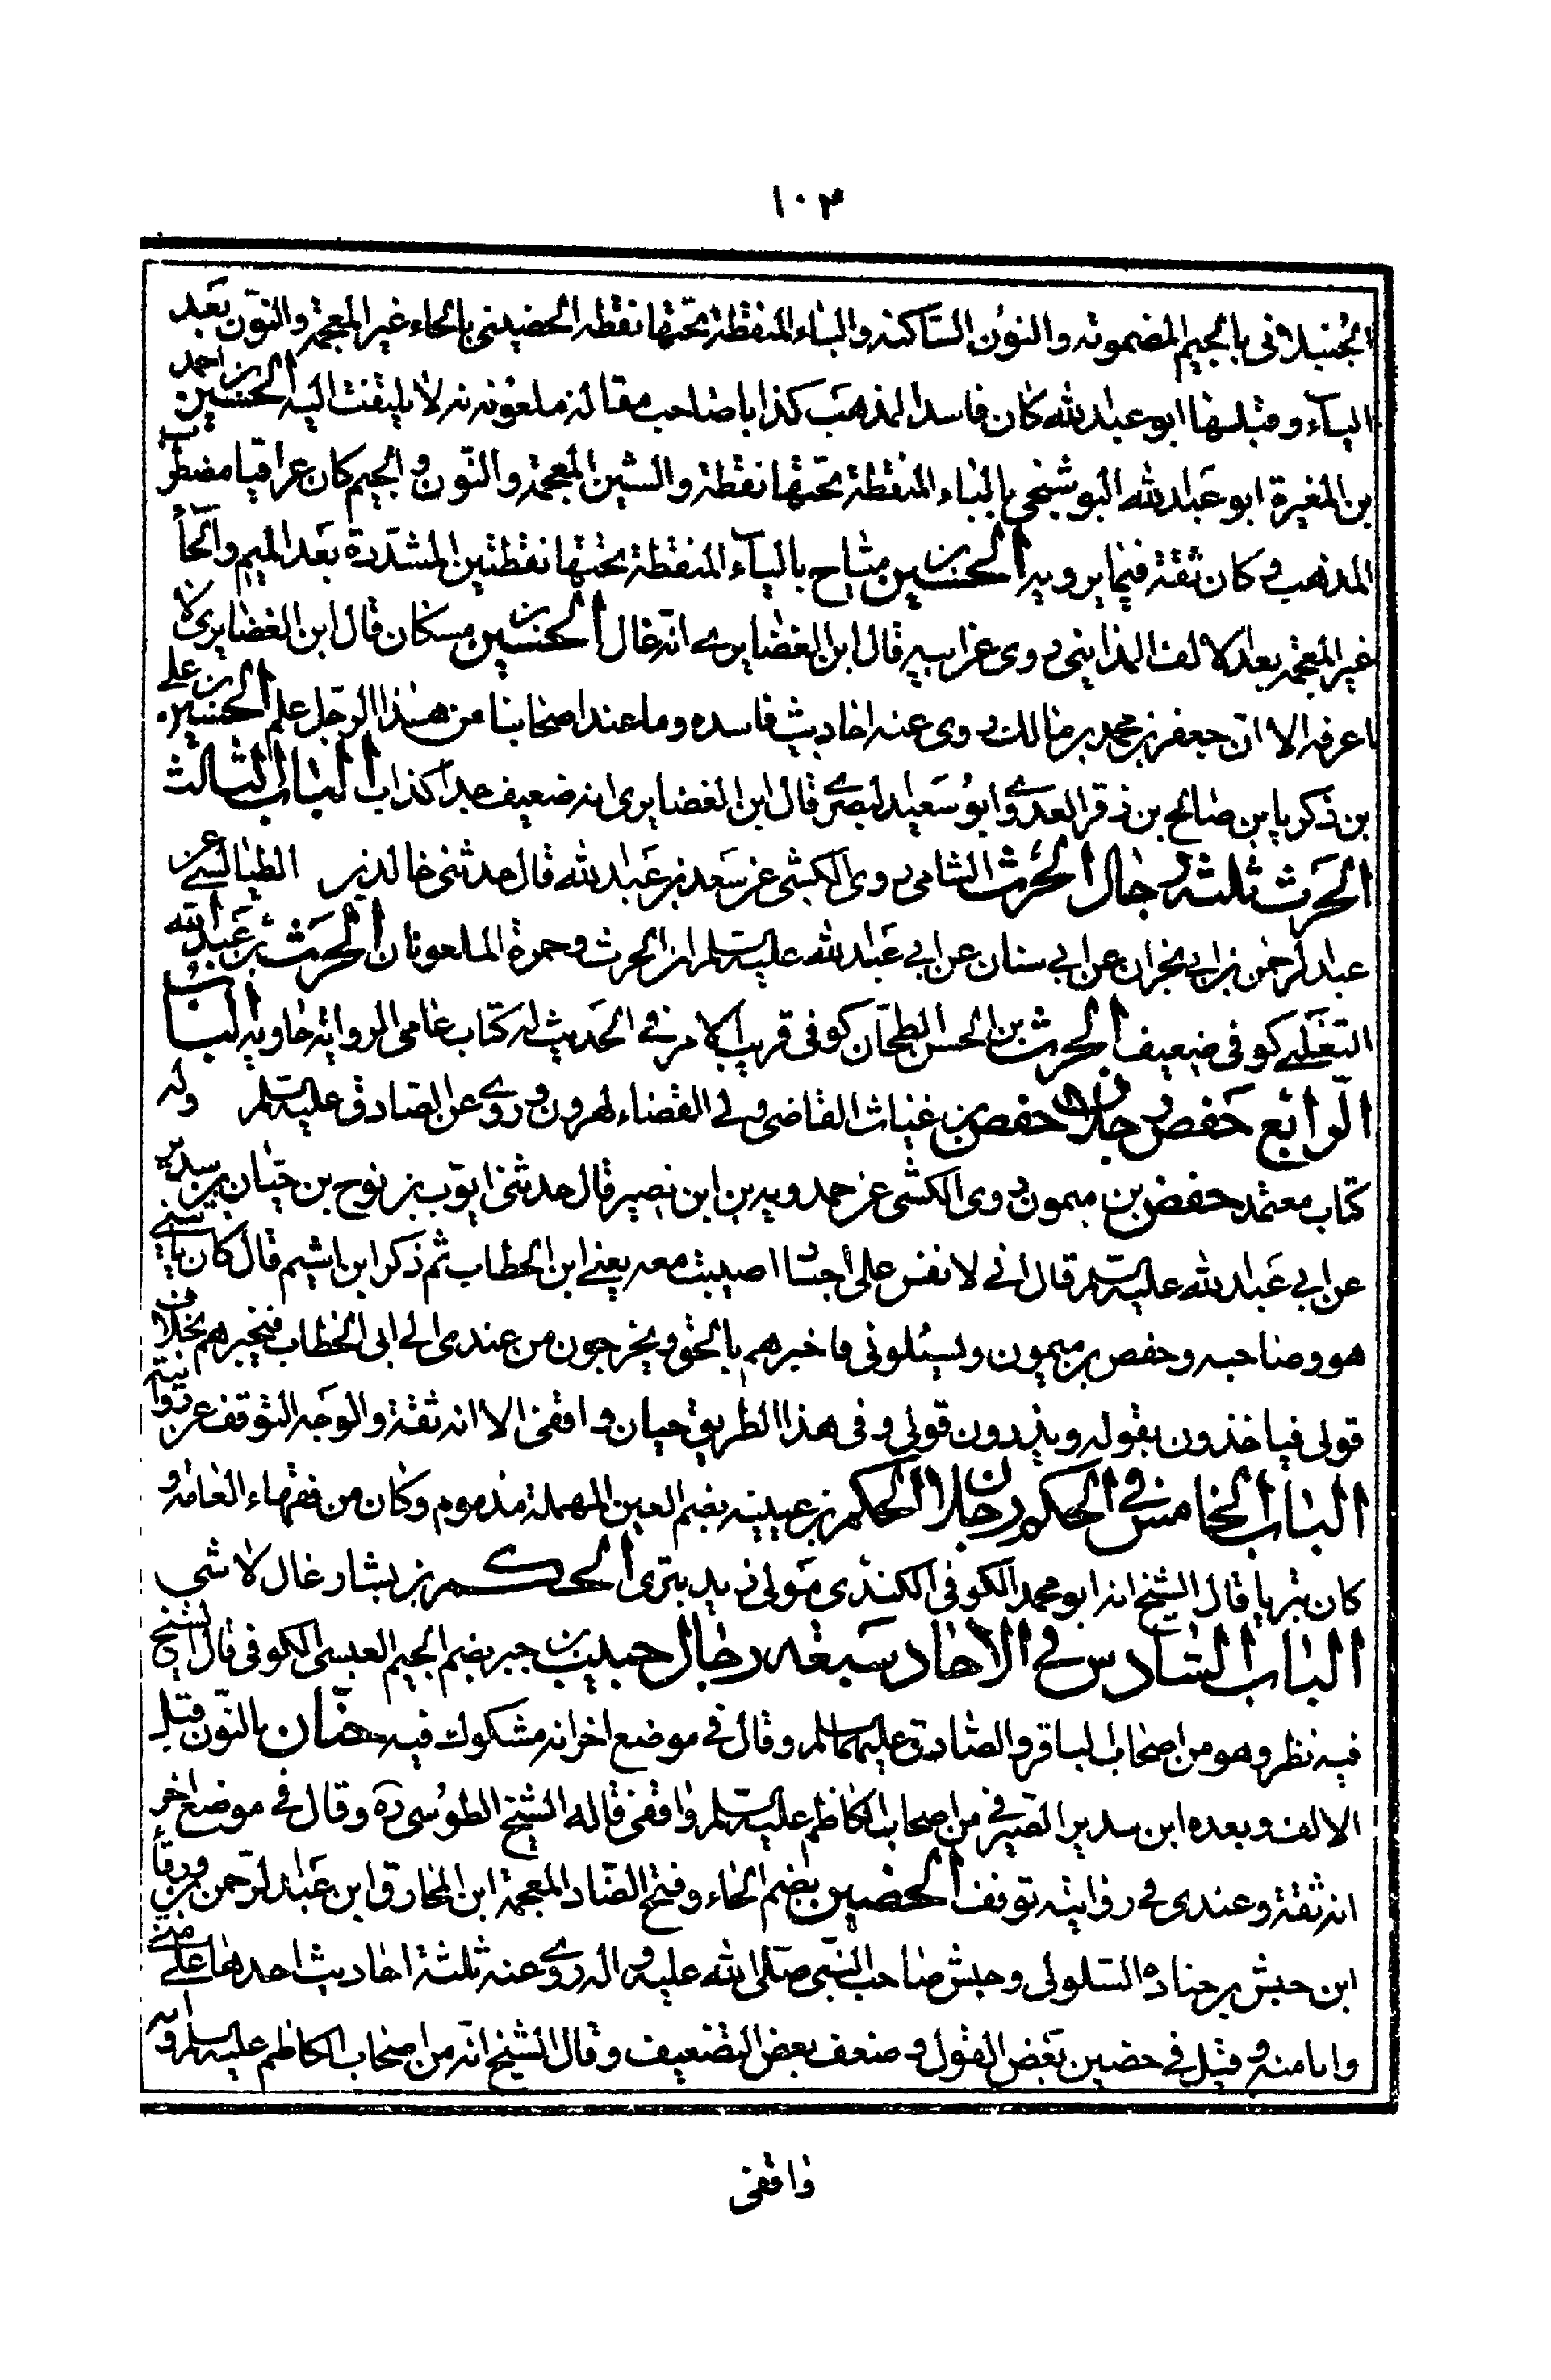 ١٠٣
الجنبلانى بالجيم المضمومة والنون الساكنة والباء المنقطة تحتها نقطه الحضينى بالحاء غير المعجمة والنون بعد
الياء وقبلها ابو عبد الله كان فاسد المذهب كذابا صاحب مقالة ملعونة لا يلتفت اليه الحسين بن احمد
بن المغيرة ابو عبد الله البوشنجى بالباء المنقطة تحتها نقطة والشين المعجمة والنون والجيم كان عراقيا مضطرب
المذهب وكان ثقة فيما يرويه الحسين بن مياح بالياء المنقطة تحتها نقطتين المشددة بعد الميم والحاء
غير المعجمة بعد الالف المداينى روى عن ابيه قال ابن الغضايرى انه غال الحسين بن مسكان قال ابن الغضايرى لا
اعرفه الا ان جعفر بن محمد بن مالك روى عنه احاديث فاسده وما عند اصحابنا من هذا الرجل علم الحسين بن على
بن زكريا بن صالح بن زفر العدوى ابو سعيد البصرى قال ابن الغضايرى انه ضعيف جدا كذاب الباب الثالث
الحرث ثلثة رجال الحرث الشامى روى الكشى عن سعد بن عبد الله قال حدثنى خالد بن الطيالسى عن
عبد الرحمن بن ابى نجران عن ابى سنان عن ابى عبد الله عليه السلم ان الحرث وحمزة الملعونان الحرث بن عبد الله
التغلبى كوفى ضعيف الحرث بن الحسن الطحان كوفى قريب الامر فى الحديث له كتاب عامى الرواية حاويه الباب
الرابع حفص رجلان حفص بن غياث القاضى ولى القضاء لهرون وروى عن الصادق عليه السلم وله
كتاب معتمد حفص بن ميمون روى الكشى عن حمدويه بن ابن نصير قال حدثنى ايوب بن نوح بن حنان بن سدير
عن ابى عبد الله عليه السلم قال انى لانفس على اجساد اصيبت معه يعنى ابن الخطاب ثم ذكر ابن اشيم قال كان ياتينى
هو وصاحبه وحفص بن ميمون ويسئلونى فاخبرهم بالحق ويخرجون من عندى الى ابى الخطاب فيخبرهم بخلاف
قولى فياخذون بقوله ويذرون قولى وفى هذا الطريق حيان واقفى الا انه ثقة والوجه التوقف عن روايته
الباب الخامس فى الحكم رجلان الحكم بن عيينه بضم العين المهملة مذموم وكان من فقهاء العامة و
كان بتريا قال الشيخ انه ابو محمد الكوفى الكندى مولى زيد بترى الحكم بن بشار غال لا شىء
الباب السادس فى الاحاد سبعه رجال حبيب بن جبر بضم الجيم العبسى الكوفى قال الشيخ
فيه نظر وهو من اصحاب الباقر والصادق عليهما السلم وقال فى موضع اخر انه مشكوك فيه حنان بالنون قبل
الالف وبعده ابن سدير الصيرفى من اصحاب الكاظم عليه السلم واقفى قاله الشيخ الطوسى ره وقال فى موضع اخر
انه ثقة وعندى فى روايته توقف الحضين بضم الحاء وفتح الضاد المعجمة ابن المخارق ابن عبد الرحمن بن ورقاء
ابن حبش بن جناده السلولى وحبش صاحب النبى صلى الله عليه واله روى عنه ثلثة احاديث احدها على منى
وانا منه وقيل فى حضين بعض القول وضعف بعض التضعيف وقال الشيخ انه من اصحاب الكاظم عليه السلم وانه
واقفى